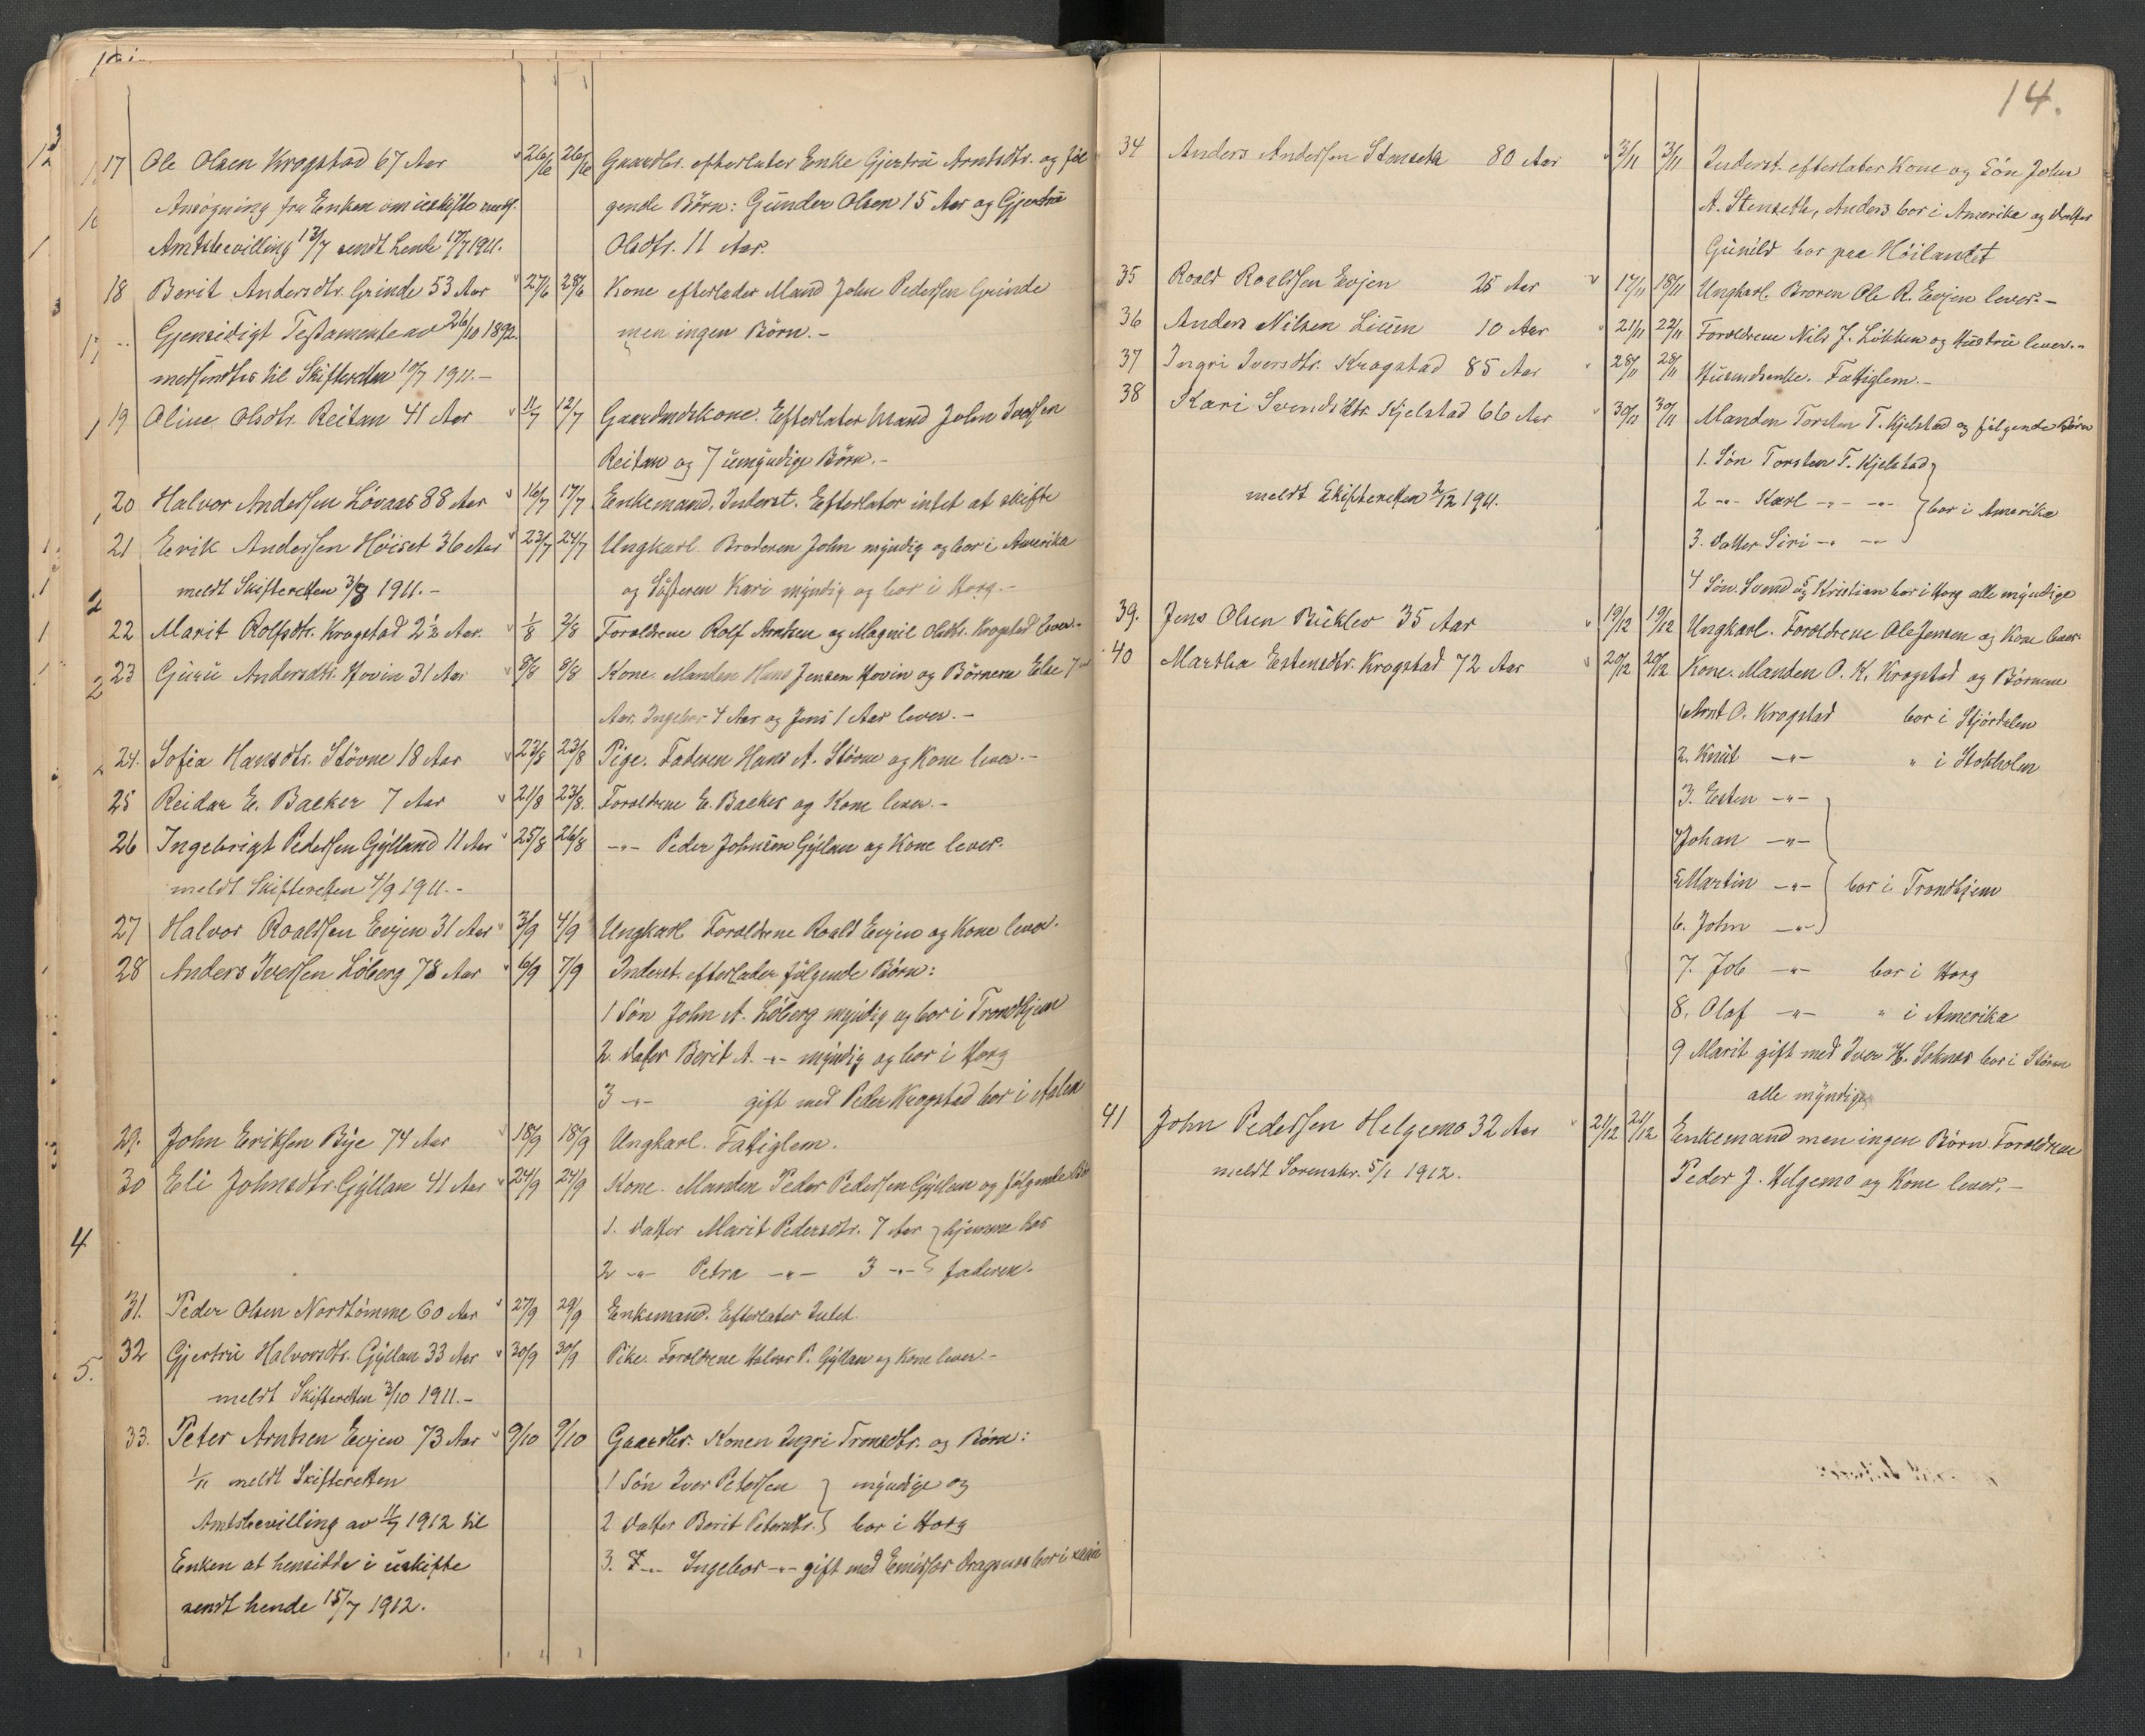 17 Ole Olsen Krogstad 67 Aar 26/6 26/6 Gaardbr. efterlater Enke Gjertrü Arntsdtr. og føl
Ansøgning fra Enken om uskifte meds. gende Børn: Gunder Olsen 15 Aar og Gjertrü
Amtsbevilling 13/7 sendt hende 17/7 1911. Olsdtr. 11 Aar.
18 Berit Andersdtr. Grinde 53 Aar 27/6 28/6 Kone efterlader Mand John Pedersen Grinde
Gjensidigt Testamente av 26/10 1892. men ingen Børn.-
medsendtes til Skifteretten 10/7 1911.-
19 Oline Olsdtr. Reitan 41 Aar 11/7 12/7 Gaardmdskone. Efterlater Mand John Iversen
Reitan og 7 umyndige Børn.-
20 Halvor Andersen Løvaas 88 Aar 16/7 17/7 Enkemand. Inderst. Efterlater intet at skifte
21 Erik Andersen Høiset 36 Aar 23/7 24/7 Ungkarl. Broderen John myndig og bor i Amerika
meldt Skifteretten 3/8 1911.- og Søsteren Kari myndig og bor i Horg.-
22 Marit Rolfsdtr. Krogstad 2½ Aar. 1/8 2/8 Forældrene Rolf Arntsen og Magnil Olsdtr. Krogstad lever.-
23 Guru Andersdtr. Hovin 31 Aar 8/8 8/8 Kone. Manden Hans Jensen Hovin og Børnene Else 7
Aar, Ingebor 4 Aar og Jens 1 Aar lever.-
24. Sofia Hansdtr. Støvne 18 Aar 22/8 23/8 Pige. Faderen Hans A. Støvne og Kone lever.-
25 Reidar E. Backer 7 Aar 21/8 23/8. Forældrene E. Backer og Kone lever.-
26 Ingebrigt Pedersen Gylland 11 Aar 25/8 26/8 -"- Peder Johnsen Gyllan og Kone lever.
meldt Skifteretten 4/9 1911.-
27 Halvor Roaldsen Evjen 31 Aar 3/9 4/9 Ungkarl Forældrene Roald Evjen og Kone lever.
28 Anders Iversen Løberg 78 Aar 6/9 7/9 Inderst. efterlader følgende Børn:
1 Søn John A. Løberg myndig og bor i Trondhjem
2. Datter Berit A. -"- myndig og bor i Horg
3 -"- gift med Peder Krogstad bor i Aalen
29. John Eriksen Bye 74 Aar 18/9 18/9 Ungkarl. Fattiglem.
30 Eli Johnsdtr. Gyllan 41 Aar 24/9 24/9 Kone. Manden Peder Pedersen Gyllan og følgende Bør
1. Datter Marit Pedersdtr. 7 Aar } hjemme hos
2 -"- Petra -"- 3 -"- } faderen.
31. Peder Olsen Nordtømme 60 Aar 27/9 29/9 Enkemand. Efterlater Intet.
32 Gjertrü Halvorsdtr. Gyllan 33 Aar 30/9 30/9 Pike. Forældrene Halvor P. Gyllan og Kone lever.-
meldt Skifteretten 3/10 1911.-
33. Peter Arntsen Evjen 73 Aar 9/10 9/10 Gaardbr. Konen Ingri Tronsdtr. og Børn:
1/11 meldt Skifteretten 1 Søn Iver Petersen } myndige og
Amtsbevilling av 11/7 1912 til 2 Datter Berit Petersdtr. } bor i Horg
Enken at hensidde i uskifte 3. -"- Ingebor -"- gift med Dragsnes bor i
sendt hende 15/7 1912.
14.
34 Anders Andersen Stenseth 80 Aar 3/11 3/11 Inderst. efterlater Kone og Søn John
A. Stenseth, Anders bor i Amerika og datter
Gunild bor paa Høilandet
35 Roald Roaldsen Evjen 25 Aar 17/11 18/11 Ungkarl. Broren Ole R. Evjen lever.-
36 Anders Nilsen Lium 10 Aar 21/11 22/11 Forældrene Nils J. Løkken og Hustru lever.-
37 Ingri Iversdtr. Krogstad 85 Aar 28/11 28/11 Husmdsenke. Fattiglem.-
38 Kari Svendsdtr. Kjelstad 66 Aar 30/11 30/11 Manden Torsten T. Kjelstad og følgende Børn
1. Søn Torsten T. Kjelstad }
meldt Skifteretten 2/12 1911. 2 -"- Karl -"- -"- } bor i Amerika
3. Datter Siri -"- -"- }
4 Søn Svend og 5 Kristian bor i Horg alle myndige
39. Jens Olsen Buklev 35 Aar 19/12 19/12 Ungkarl. Forældrene Ole Jensen og Kone lever
40 Martha Estensdtr. Krogstad 72 Aar 20/12 20/12 Kone. Manden O. K. Krogstad og Børnene
1 Arnt O. Krogstad bor i Stjørdalen
2. Knut -"- " i Stokholm
3. Esten -"- }
4 Johan -"- }
5 Martin -"- } bor i Trondhjem
6. John -"- }
7. Job -"- bor i Horg
8. Olaf -"- " i Amerika
9 Marit gift med Iver H. Soknes bor i Støren
alle myndige
41 John Pedersen Helgemo 32 Aar 21/12 21/12 Enkemand men ingen Børn. Forældrene
meldt Sorenskr. 5/1 1912. Peder J. Helgemo og Kone lever.-